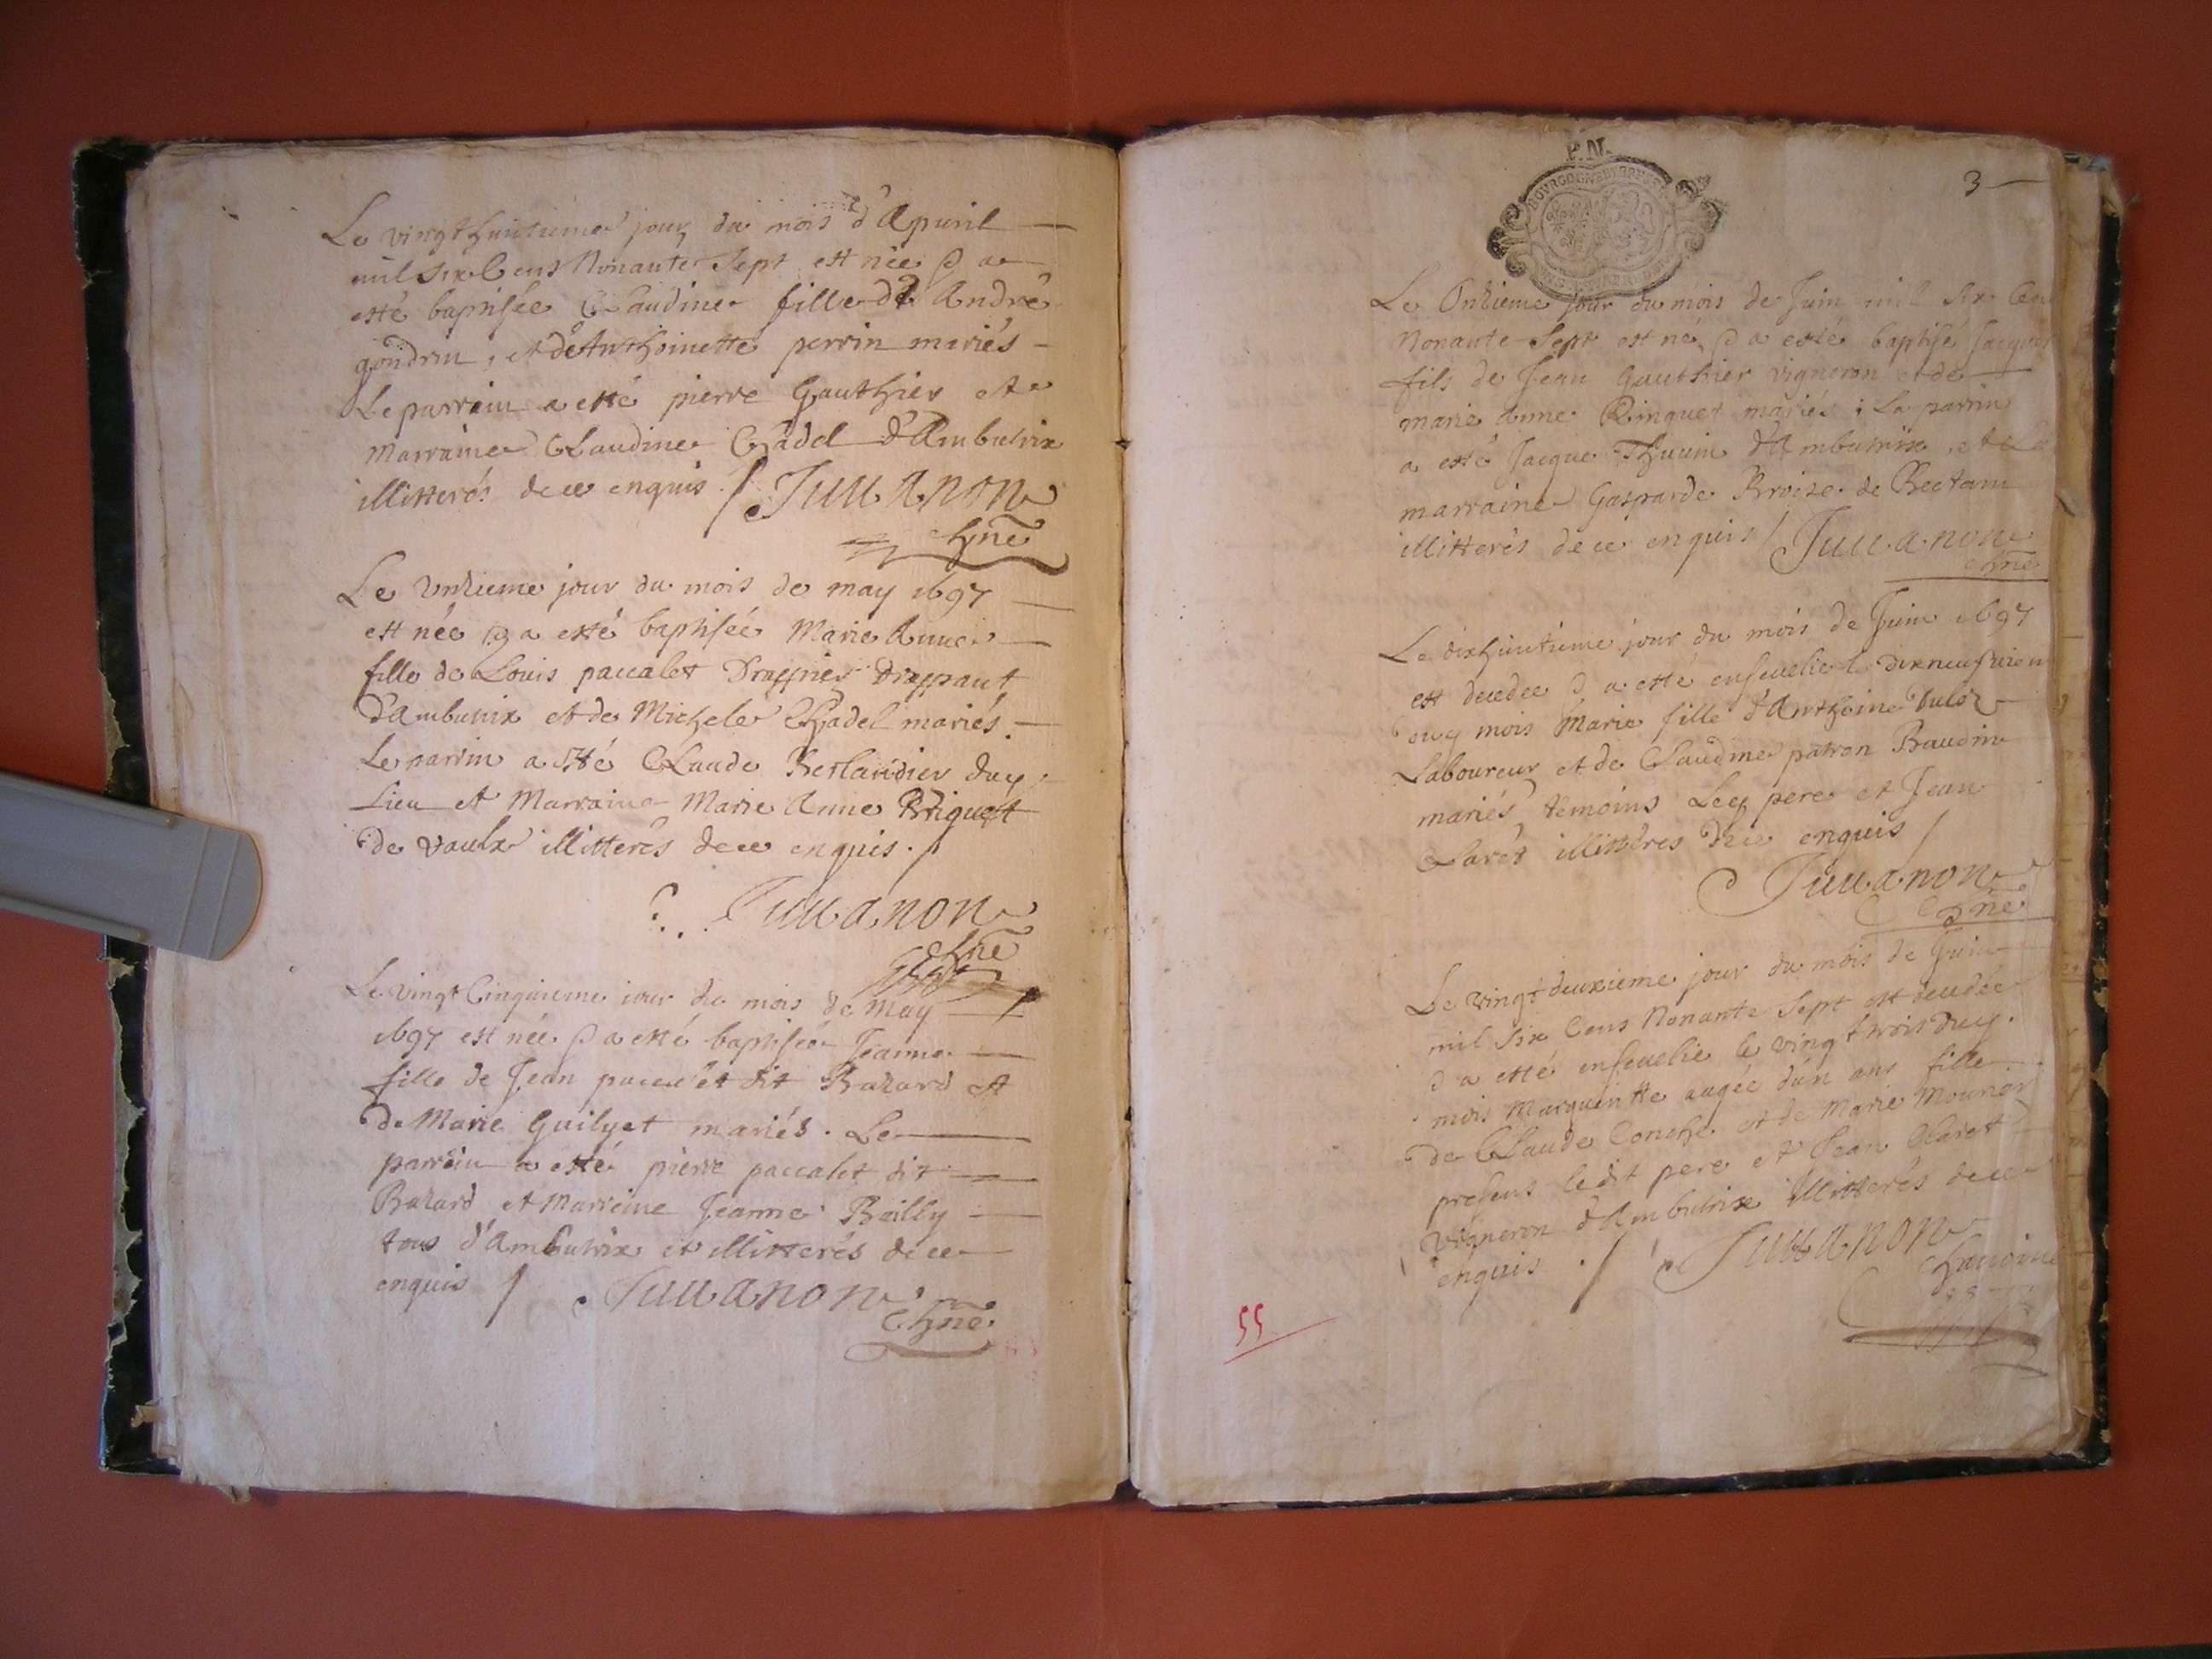 Le vingt huitieme jour du mois d'Apuril
mil six Cens Nonante Sept est née & a
esté baptisée Claudine fille de André
gondrin, et de Anthoinette perrin mariés
Le parrain a esté pierre Gauthier et
Marraine Claudine Chadel d'Ambutrix
illitterés de ce enquis / Juuanon
Chne
Le Unzieme jour du mois de may 1697
est née & a esté baptisée Marie Anne
fille de Louis paccalet Drappier Drappant
d'Ambutrix et de Michele Chadel mariés.
Le parrin a esté Claude Berlandier duq
Lieu et Marraine Marie Anne Briquet
de vaulx illitterés de ce enquis. /
Juuanon
Chne
Le vingt Cinquieme jour du mois de May
1697 est née & a esté baptisée Jeanne
fille de Jean paccalet dit Bazard et
de Marie Guilyet mariés. Le
parrain a esté pierre paccalet dit
Bazard et Marreine Jeanne Bailly
tous d'Ambutrix et illitterés de ce
enquis / Juuanon
Chne.
P.N.
BOVRGOGNE
3
Le Onzieme jour du mois de Juin mil six Cen
Nonante Sept est né, & a esté baptisé Jacques
fils de Jean Gauthier vigneron et de
marie Anne Ringuet mariés; Le parrin
a esté Jacque Thuuin d'Ambutrix, et La
marraine Gasparde Broize de Bectam
illitterés de ce enquis / Juuanon
Chne
Le dixhuitieme jour du mois de Juin 1697
est decedee & a esté enseuelie le dixneufuiem
duq mois Marie fille d'Anthoine
Laboureur et de Claudine patron Baudin
mariés, temoins Led pere et Jean
Claret illitteres de ce enquis /
Juuanon
Chne
Le vingt deuxieme jour du mois de Juin
mil Six Cens Nonante Sept est decedée
& a esté enseuelie le vingt trois duq.
mois Margueritte aagée d'un ans fille
de Claude Conche et de Marie Mounier
presens ledit pere et Jean Claret
vigneron d'Ambutrix illitterés de ce
enquis. / Juuanon
Chanoine
55